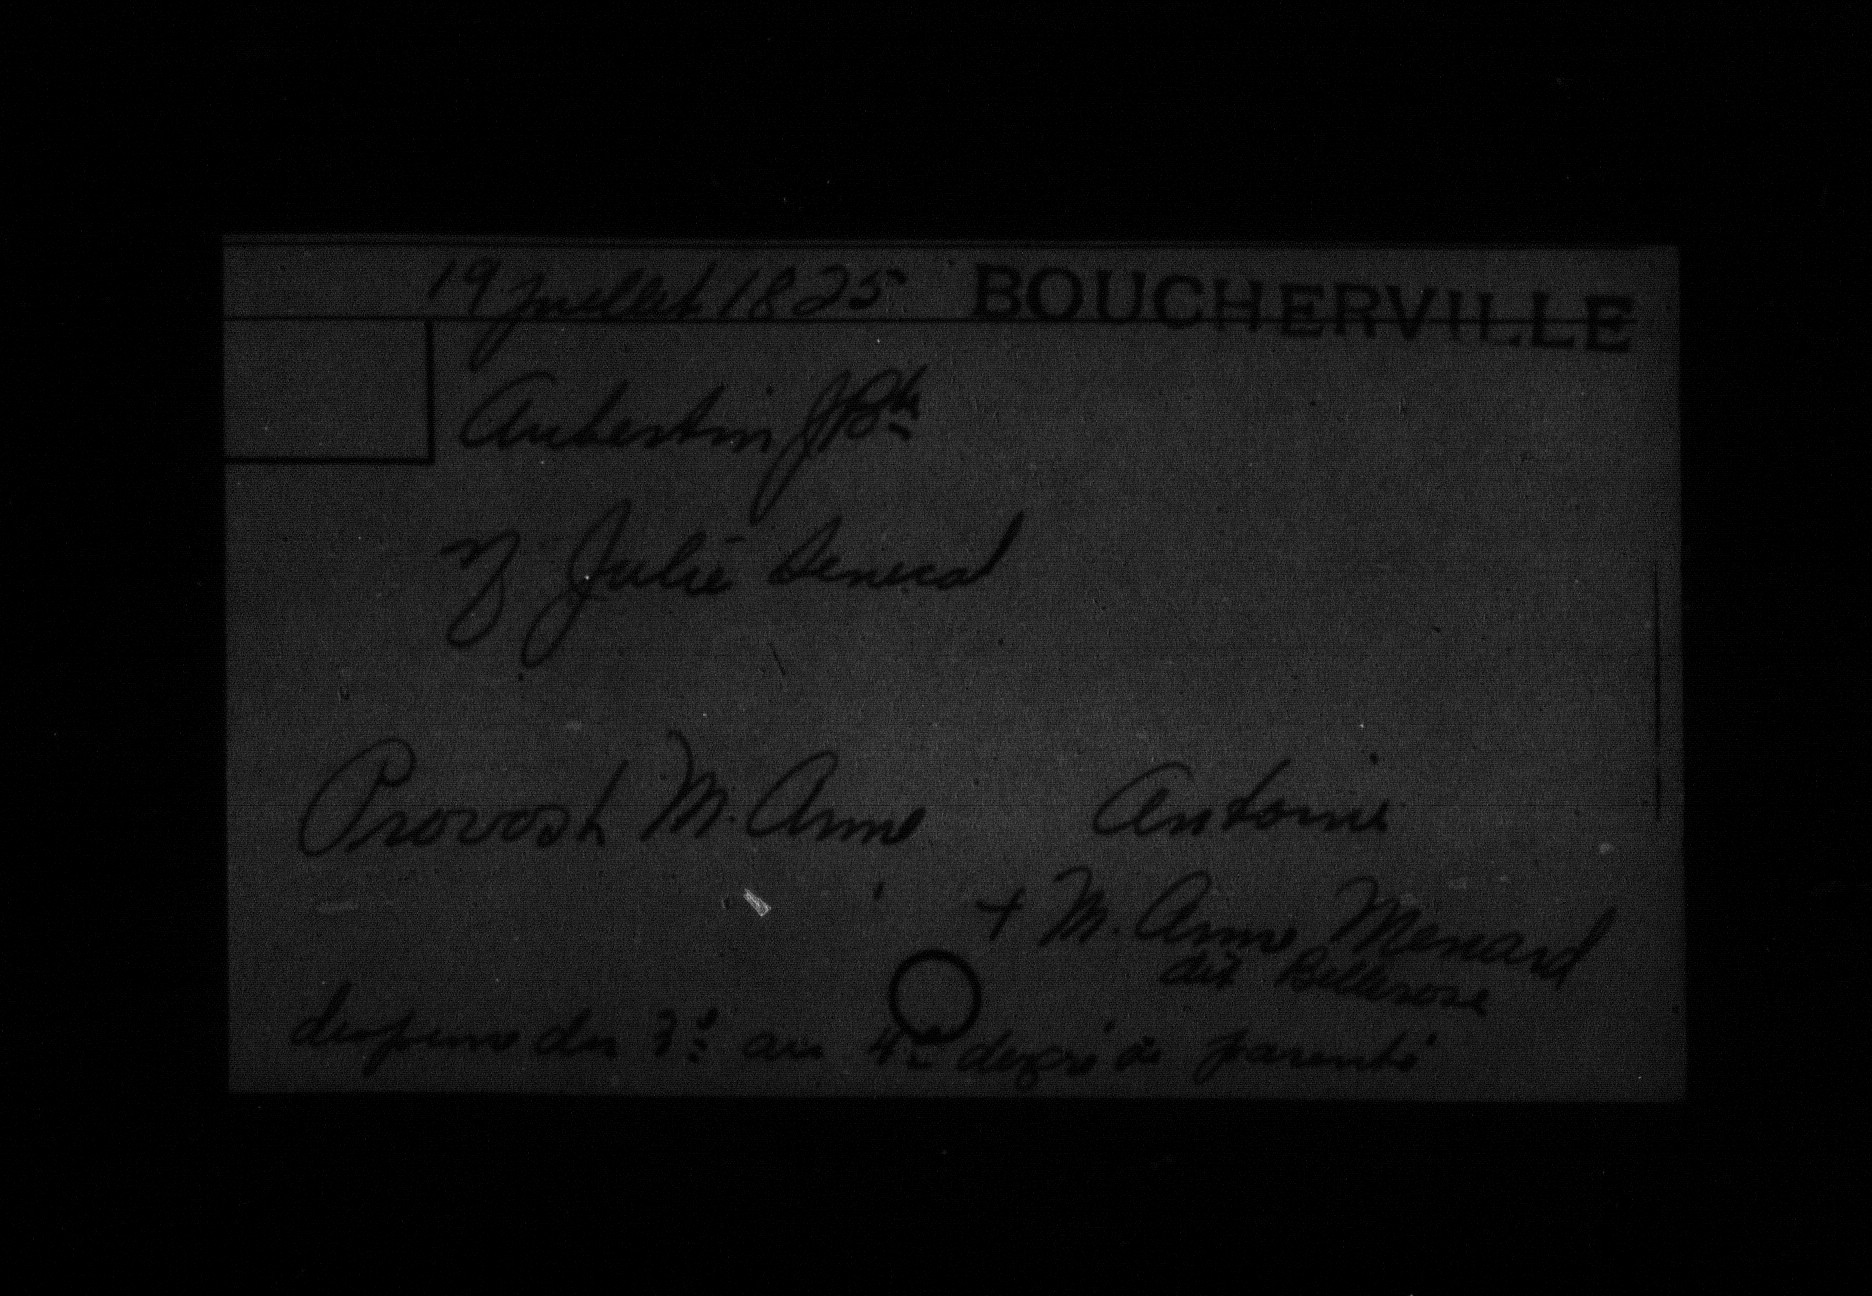 19 juillet 1825 BOUCHERVILLE
Aubertin J Bte
vf Julie Senecal
Provost M. Anne Antoine
+ M. Anne Menard
dit Bellerose
dispense du 3e au 4e degré de parenté